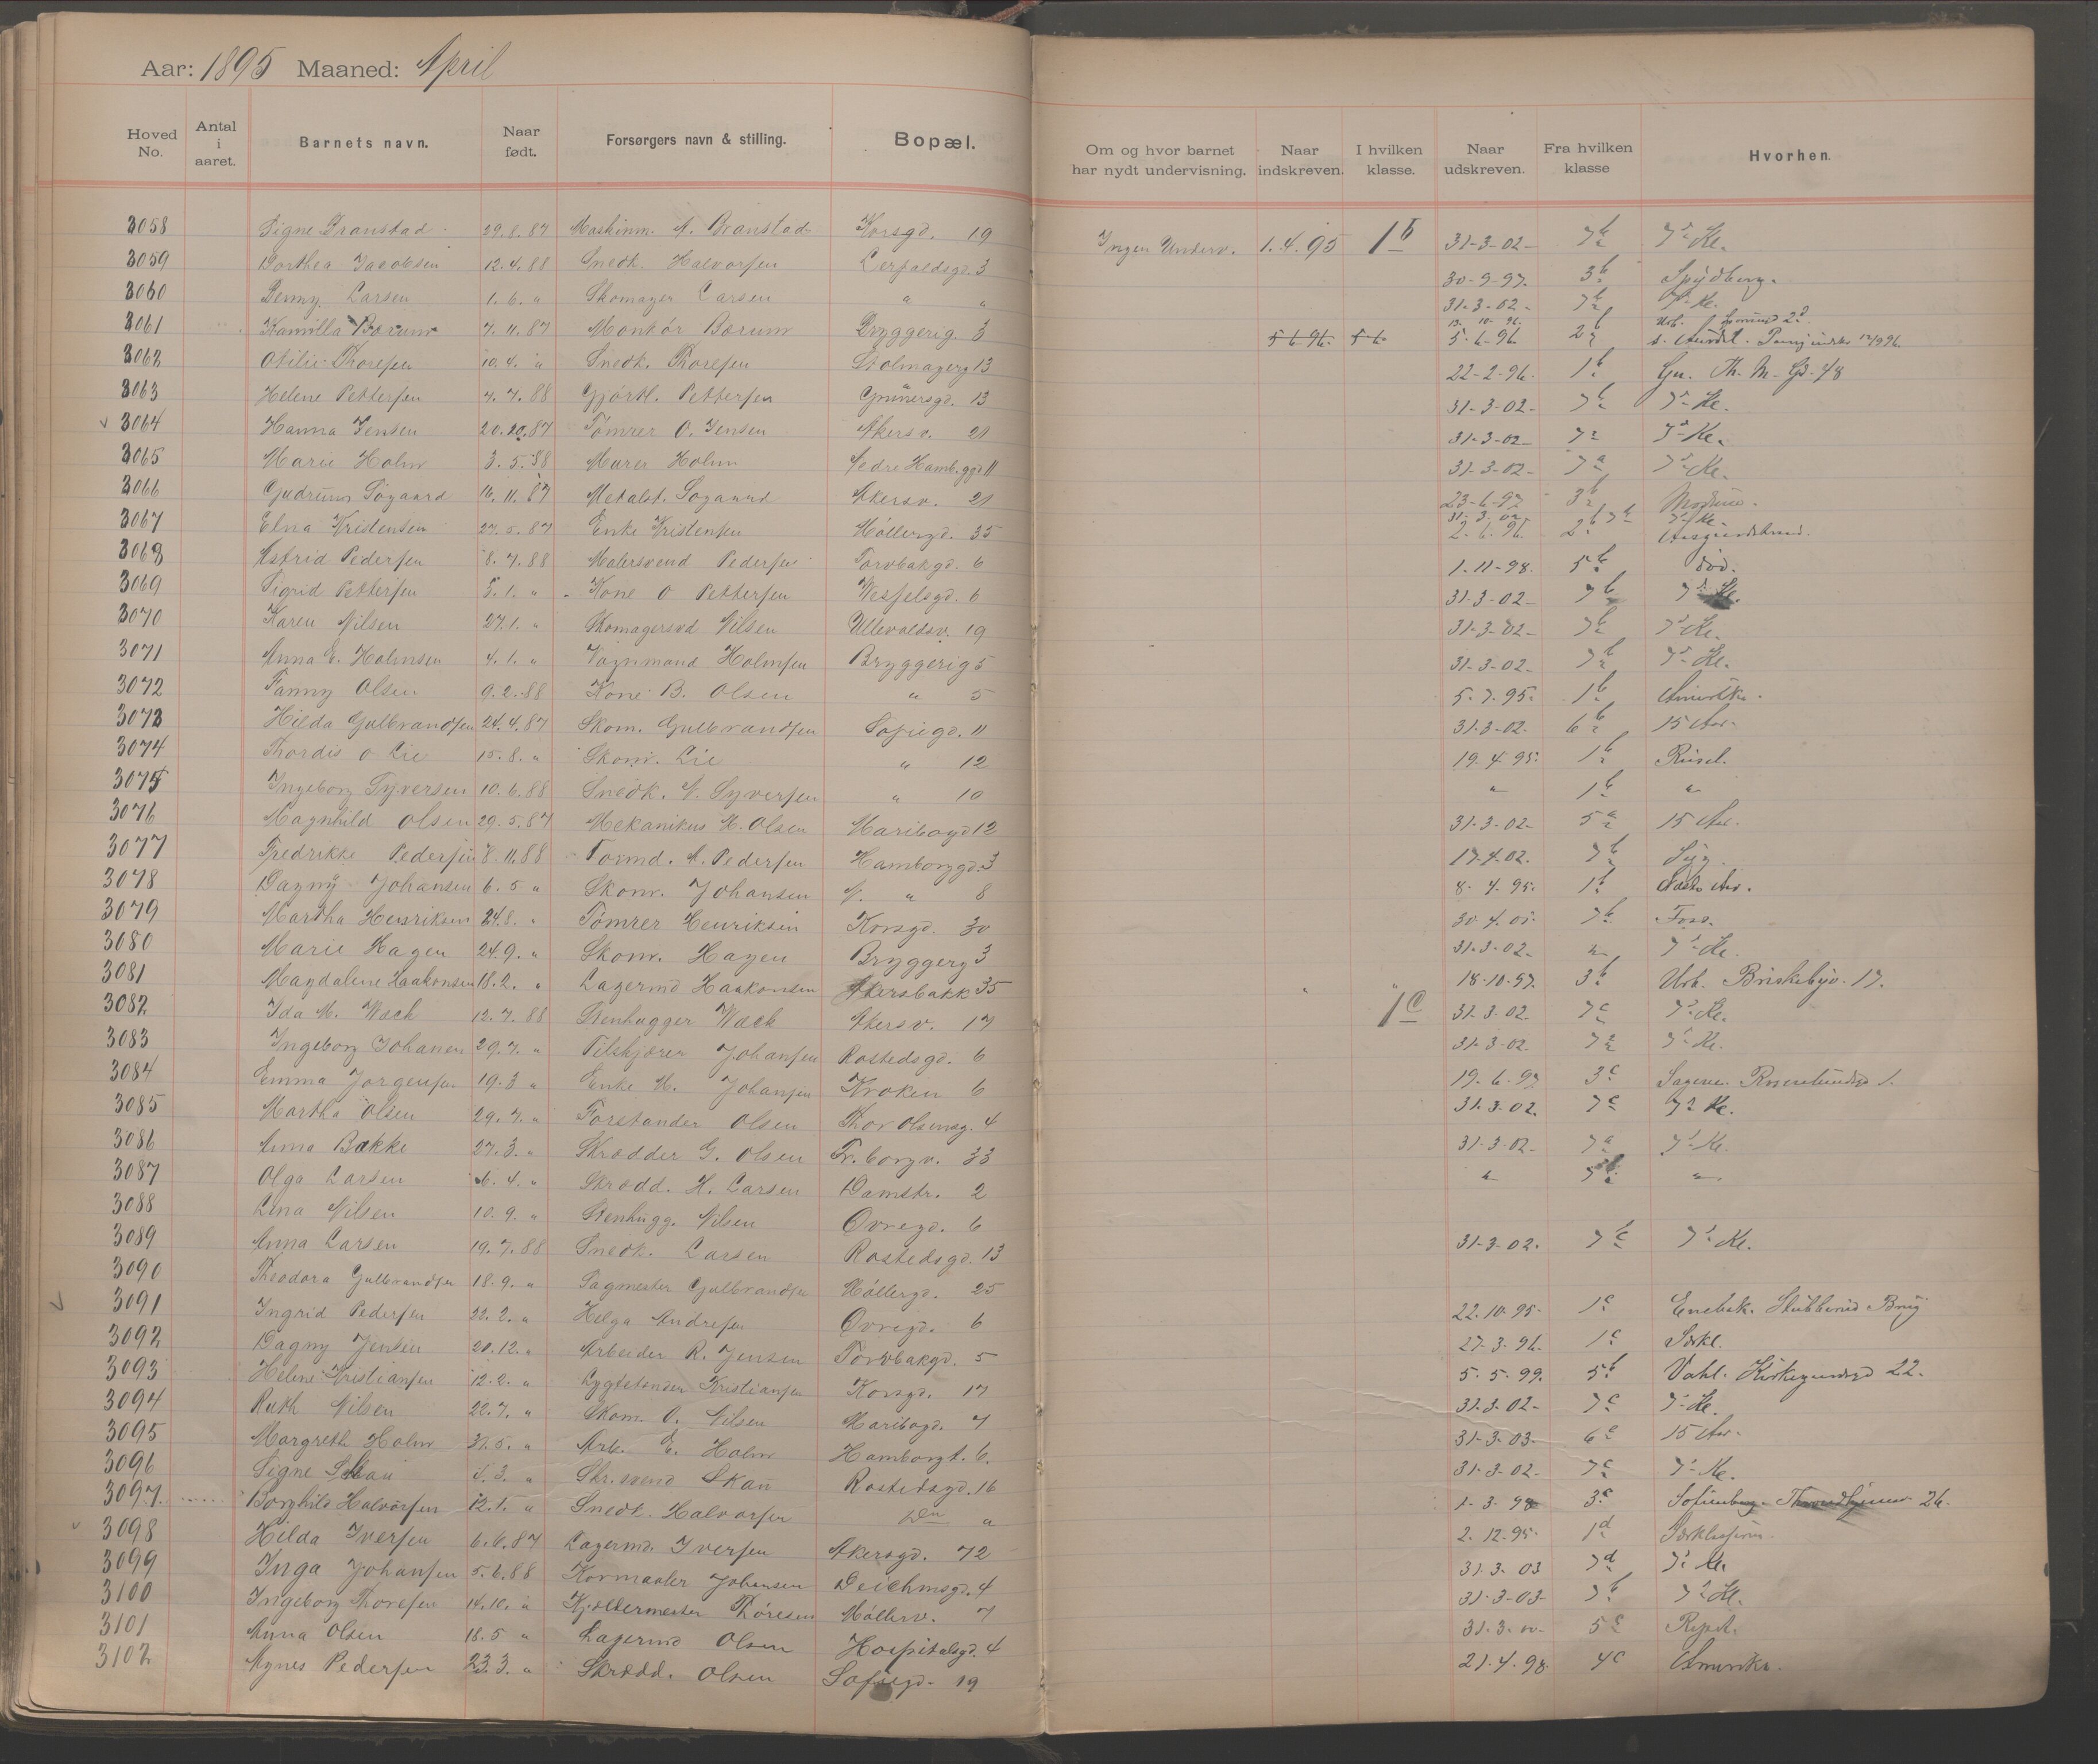 Aar: 1895 Maaned: April
Hoved No. Antal i aaret. Barnets navn. Naar født. Forsørgers navn & stilling. Bopæl. Om og hvor barnet har nydt undervisning. Naar indskreven. I hvilken klasse. Naar udskreven. Fra hvilken klasse Hvorhen.
3058 Signe Branstad 29.8.87 Maskinm. A. Branstad Korsgd. 19 Ingen Underv. 1.4.95 1b 31-3-02- 7b 7'-Kl.
3059 Dorthea Jacobsen 12.4.88 Snedk. Halvorsen 3 30-9-97. 3b Spydberg.
3060 Jenny Larsen 1.6. " Skomager Larsen " " 31-3-02- 7b 7'-Kl.
3061 Kamilla Bærum 7.11.87 Montør Bærum Bryggerig. 3 5-6-96. 5-6- 13-10-96. 5-6-96 2b
3062 Otilie Thoresen 10.4. " Snedk. Thoresen Stolmagerg 13 22-2-96. 1b Gr. Th. M. Gd. 48
3063 Helene Pettersen 4.7.88 Gjørtl. Pettersen Grünersgd. 13 31-3-02- 7b 7'-Kl.
3064 Hanna Jensen 20.10.87 Tømrer O. Jensen Akersv. 21 31-3-02- 7a 7'-Kl.
3065 Marie Holm 3.5.88 Murer Holm Nedre Hamb.gd 11 31-3-02- 7a 7'-Kl.
3066 Gudrun Sögaard 16.11.87 Metalst. Sogaard Akersv. 21 23-6-97 3b
3067 Elna Kristensen 27.5.87 Enke Kristensen Møllergd. 35 31-3-02- 7b 7'-Kl. 2-6-96. 2b
3068 Astrid Pedersen 8.7.88 Malersvend Pedersen Torvbakgd. 6 1-11-98. 5b død.
3069 Sigrid Pettersen 5.1. " Kone O Pettersen Wesselsgd. 6 31-3-02- 7b 7'-Kl.
3070 Karen Nilsen 27.1. " Skomagersvd Nilsen Ullevaldsv. 19 31-3-02- 7b 7'-Kl.
3071 Anna E. Holmsen 4.1. " Vognmand Holmsen Bryggerig 5 31-3-02- 7b 7'-Kl.
3072 Fanny Olsen 9.2.88 Kone B. Olsen " 5 5-7-95. 1b Amerika.
3073 Hilda Gulbrandsen 24.4.87 Skom. Gulbrandsen Sofiegd. 11 31-3-02. 6b 15 Aar.
3074 Thordis O Lie 15.8. " Skom. Lie " 12 19-4-95. 1b
3075 Ingeborg Syversen 10.6.88 Snedk. N. Syversen " 10 " 1b "
3076 Magnhild Olsen 29.5.87 Mekanikus H. Olsen Maribogd 12 31-3-02- 5a 15 Aar.
3077 Fredrikke Pedersen 8.11.88 Formd. A. Pedersen Hamborggd. 3 17-4-02. 7b Syg.
3078 Dagny Johansen 6.5 " Skom. Johansen N. " 8 8-4-95. 1b Næste Aar.
3079 Martha Henriksen 24.8. " Tømrer Henriksen Korsgd. 30 7b Foss.
3080 Marie Hagen 24.9. " Skom. Hagen Bryggerg 3 31-3-02. " 7'-Kl.
3081 Magdalene Haakonsen 18.2. " Lagermd Haakonsen Akersbakk 35 " " 18-10-97. 3b Ur. Briskebyv. 17.
3082 Ida M. Wach 12.7.88 Stenhugger Wach Akersv. 17 1c 31-3-02. 7c 7'-Kl.
3083 Ingeborg Johansen 29.7. " Filskjærer Johansen Rostedsgd. 6 31-3-02. 7a 7'-Kl.
3084 Emma Jørgensen 19.3 " Enke M. Johansen Kroken 6 19-6-97 3c Sagene. 1.
3085 Martha Olsen 29.7. " Forstander Olsen Thor Olsensg. 4 31-3-02. 7c 7'-Kl.
3086 Anna Bakke 27.3. " Skrædder G. Olsen Fr. borgv. 33 31-3-02. 7c 7'-Kl.
3087 Olga Larsen 6.4. " Skrædd. H. Larsen Damstr. 2 " "
3088 Lina Nilsen 10.9. " Stenhugg. Nilsen Ovregd. 6
3089 Anna Larsen 19.7.88 Snedk. Larsen Rostedsgd. 13 31-3-02. 7c 7'-Kl.
3090 Theodora Gulbrandsen 18.9. " Sagmester Gulbrandsen Møllergd. 25
3091 Ingrid Pedersen 22.2. " Helga Andresen Ovregd. 6 22-10-95- 1c Enebak. Stubberud Brug
3092 Dagny Jensen 20.12. " Arbeider R. Jensen Torvbakgd. 5 27-3-96. 1c
3093 Helene Kristiansen 12.2. " Lygtetænder Kristiansen Korsgd. 17 5-5-99. 5b Vahl. 22.
3094 Ruth Nilsen 22.7. " Skom. O. Nilsen Maribogd. 7 31-3-02- 7c 7'-Kl.
3095 Margrethe Holm 31.5. " Arb. E. Holm Hamborgt. 6. 31-3-03. 6c 15 Aar.
3096 Signe Skau 1.3. " Skr.svend Skau Rostedsgd. 16 31-3-02. 7c 7'-Kl.
3097 Borghild Halvorsen 12.1. " Snedk. Halvorsen Do " 1-3-98 3c Sofienberg. 26.
3098 Hilda Iversen 6.6.87 Lagermd. Iversen Akersgd. 72 2-12-95. 1d
3099 Inga Johansen 5.6.88 Kornmaaler Johansen Deichmsgd. 4 31-3-03 7d 7'-Kl.
3100 Ingeborg Thoresen 14.10. " Kjeldermester Thoresen Møllerv. 7 31-3-03- 7b 7'-Kl.
3101 Anna Olsen 18.5 " Lagermd Olsen Hospitalsgd. 4 31-3-00- 5c Repet.
3102 Agnes Pedersen 23.3. " Skrædd. Olsen Sofiegd. 19 21-4-98. 4c Amerika.